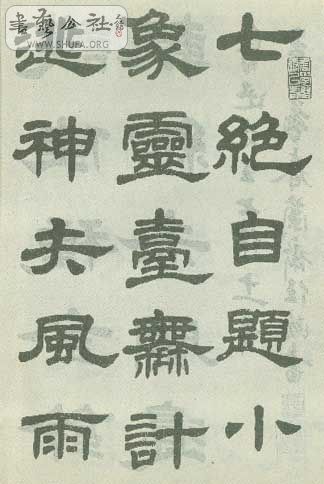 七絕自題小
象靈臺無計
逃神夫風雨
書藝公社
WWW.SHUFA.ORG